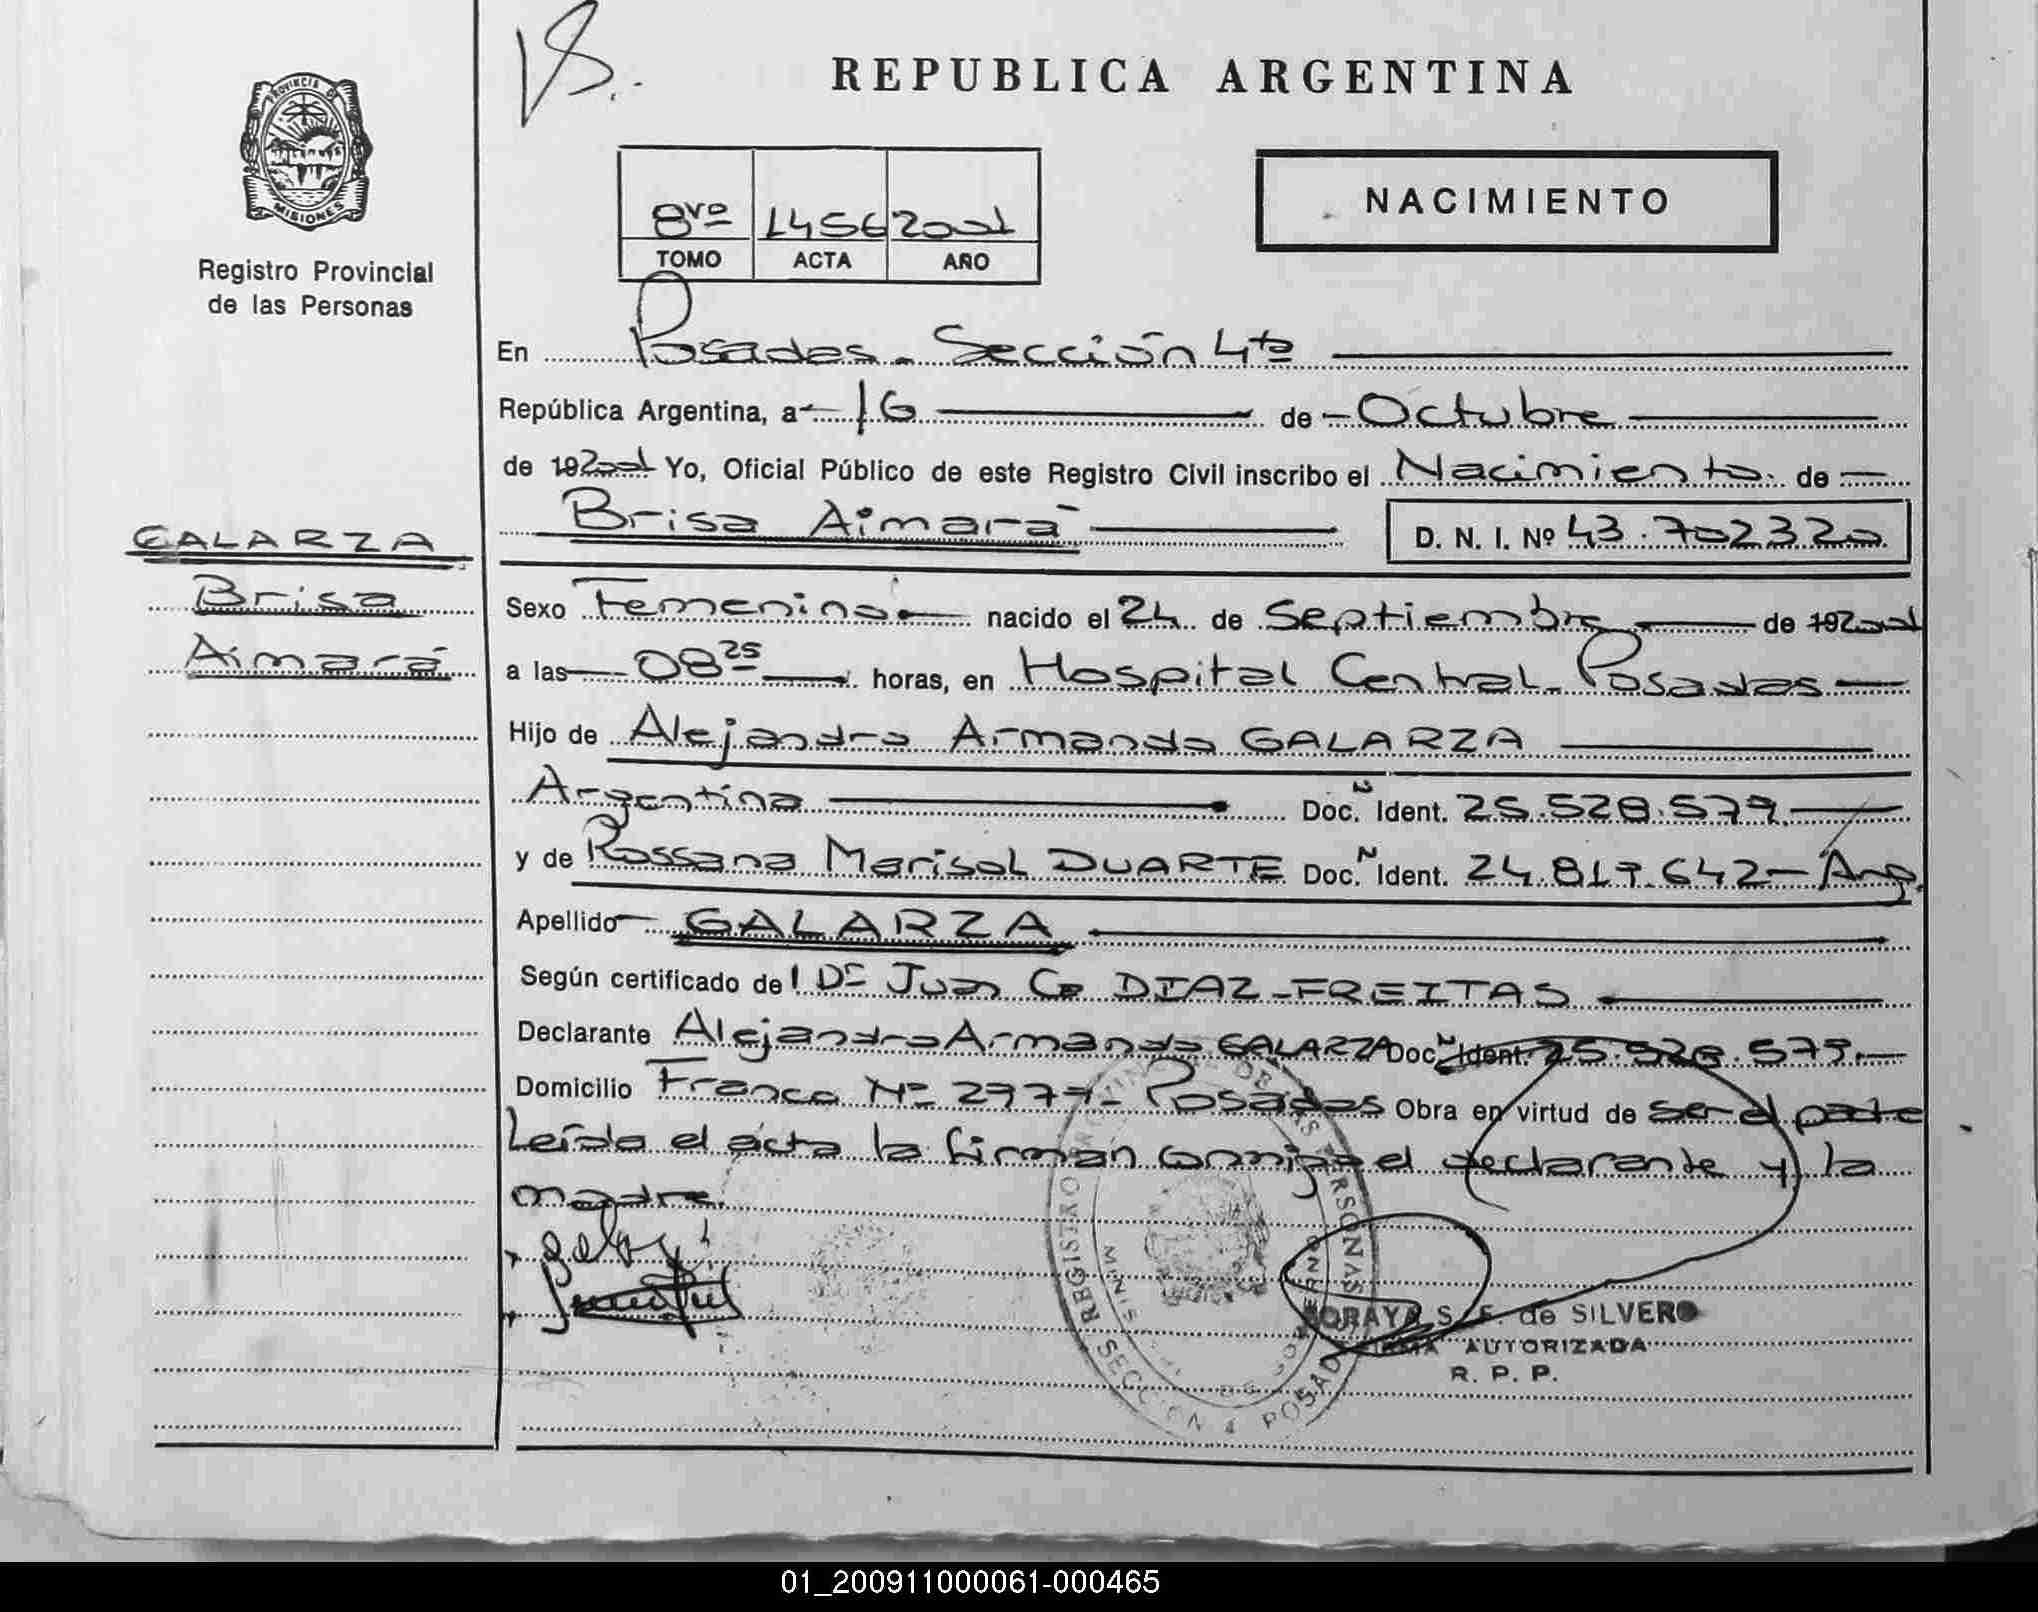 REPUBLICA ARGENTINA
PROVINCIA DE
MISIONES
Registro Provincial
de las Personas
8vo 1456 2001
TOMO ACTA AÑO
NACIMIENTO
En Posadas - Sección 4ta
República Argentina, a 16 de Octubre
de 192001 Yo, Oficial Público de este Registro Civil inscribo el Nacimiento de
Brisa Aimará D. N. I. Nº 43.702320
GALARZA
Brisa
Aimará
Sexo Femenino nacido el 24 de Septiembre de 192001
a las 08 25 horas, en Hospital Central - Posadas
Hijo de Alejandro Armando GALARZA
Argentina Doc. N Ident. 25.528.579
y de Rossana Marisol DUARTE Doc. N Ident. 24.817.642 - Arg.
Apellido GALARZA
Según certificado de l Dr Juan Co DIAZ - FREITAS
Declarante Alejandro Armando GALARZA Doc. N Ident. 25.528.579.
Domicilio Franco Nº 2977 - Posadas Obra en virtud de ser el padre
Leída el acta la firman conmigo el declarante y la
madre.
REGISTRO PROVINCIAL DE LAS PERSONAS
SECCION 4 POSADAS
SORAYA S. F. de SILVERO
FIRMA AUTORIZADA
R. P. P.
01_200911000061-000465